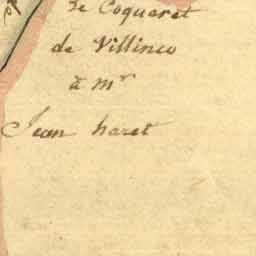 de Coqueret
de Villineu
à mr
Jean haret